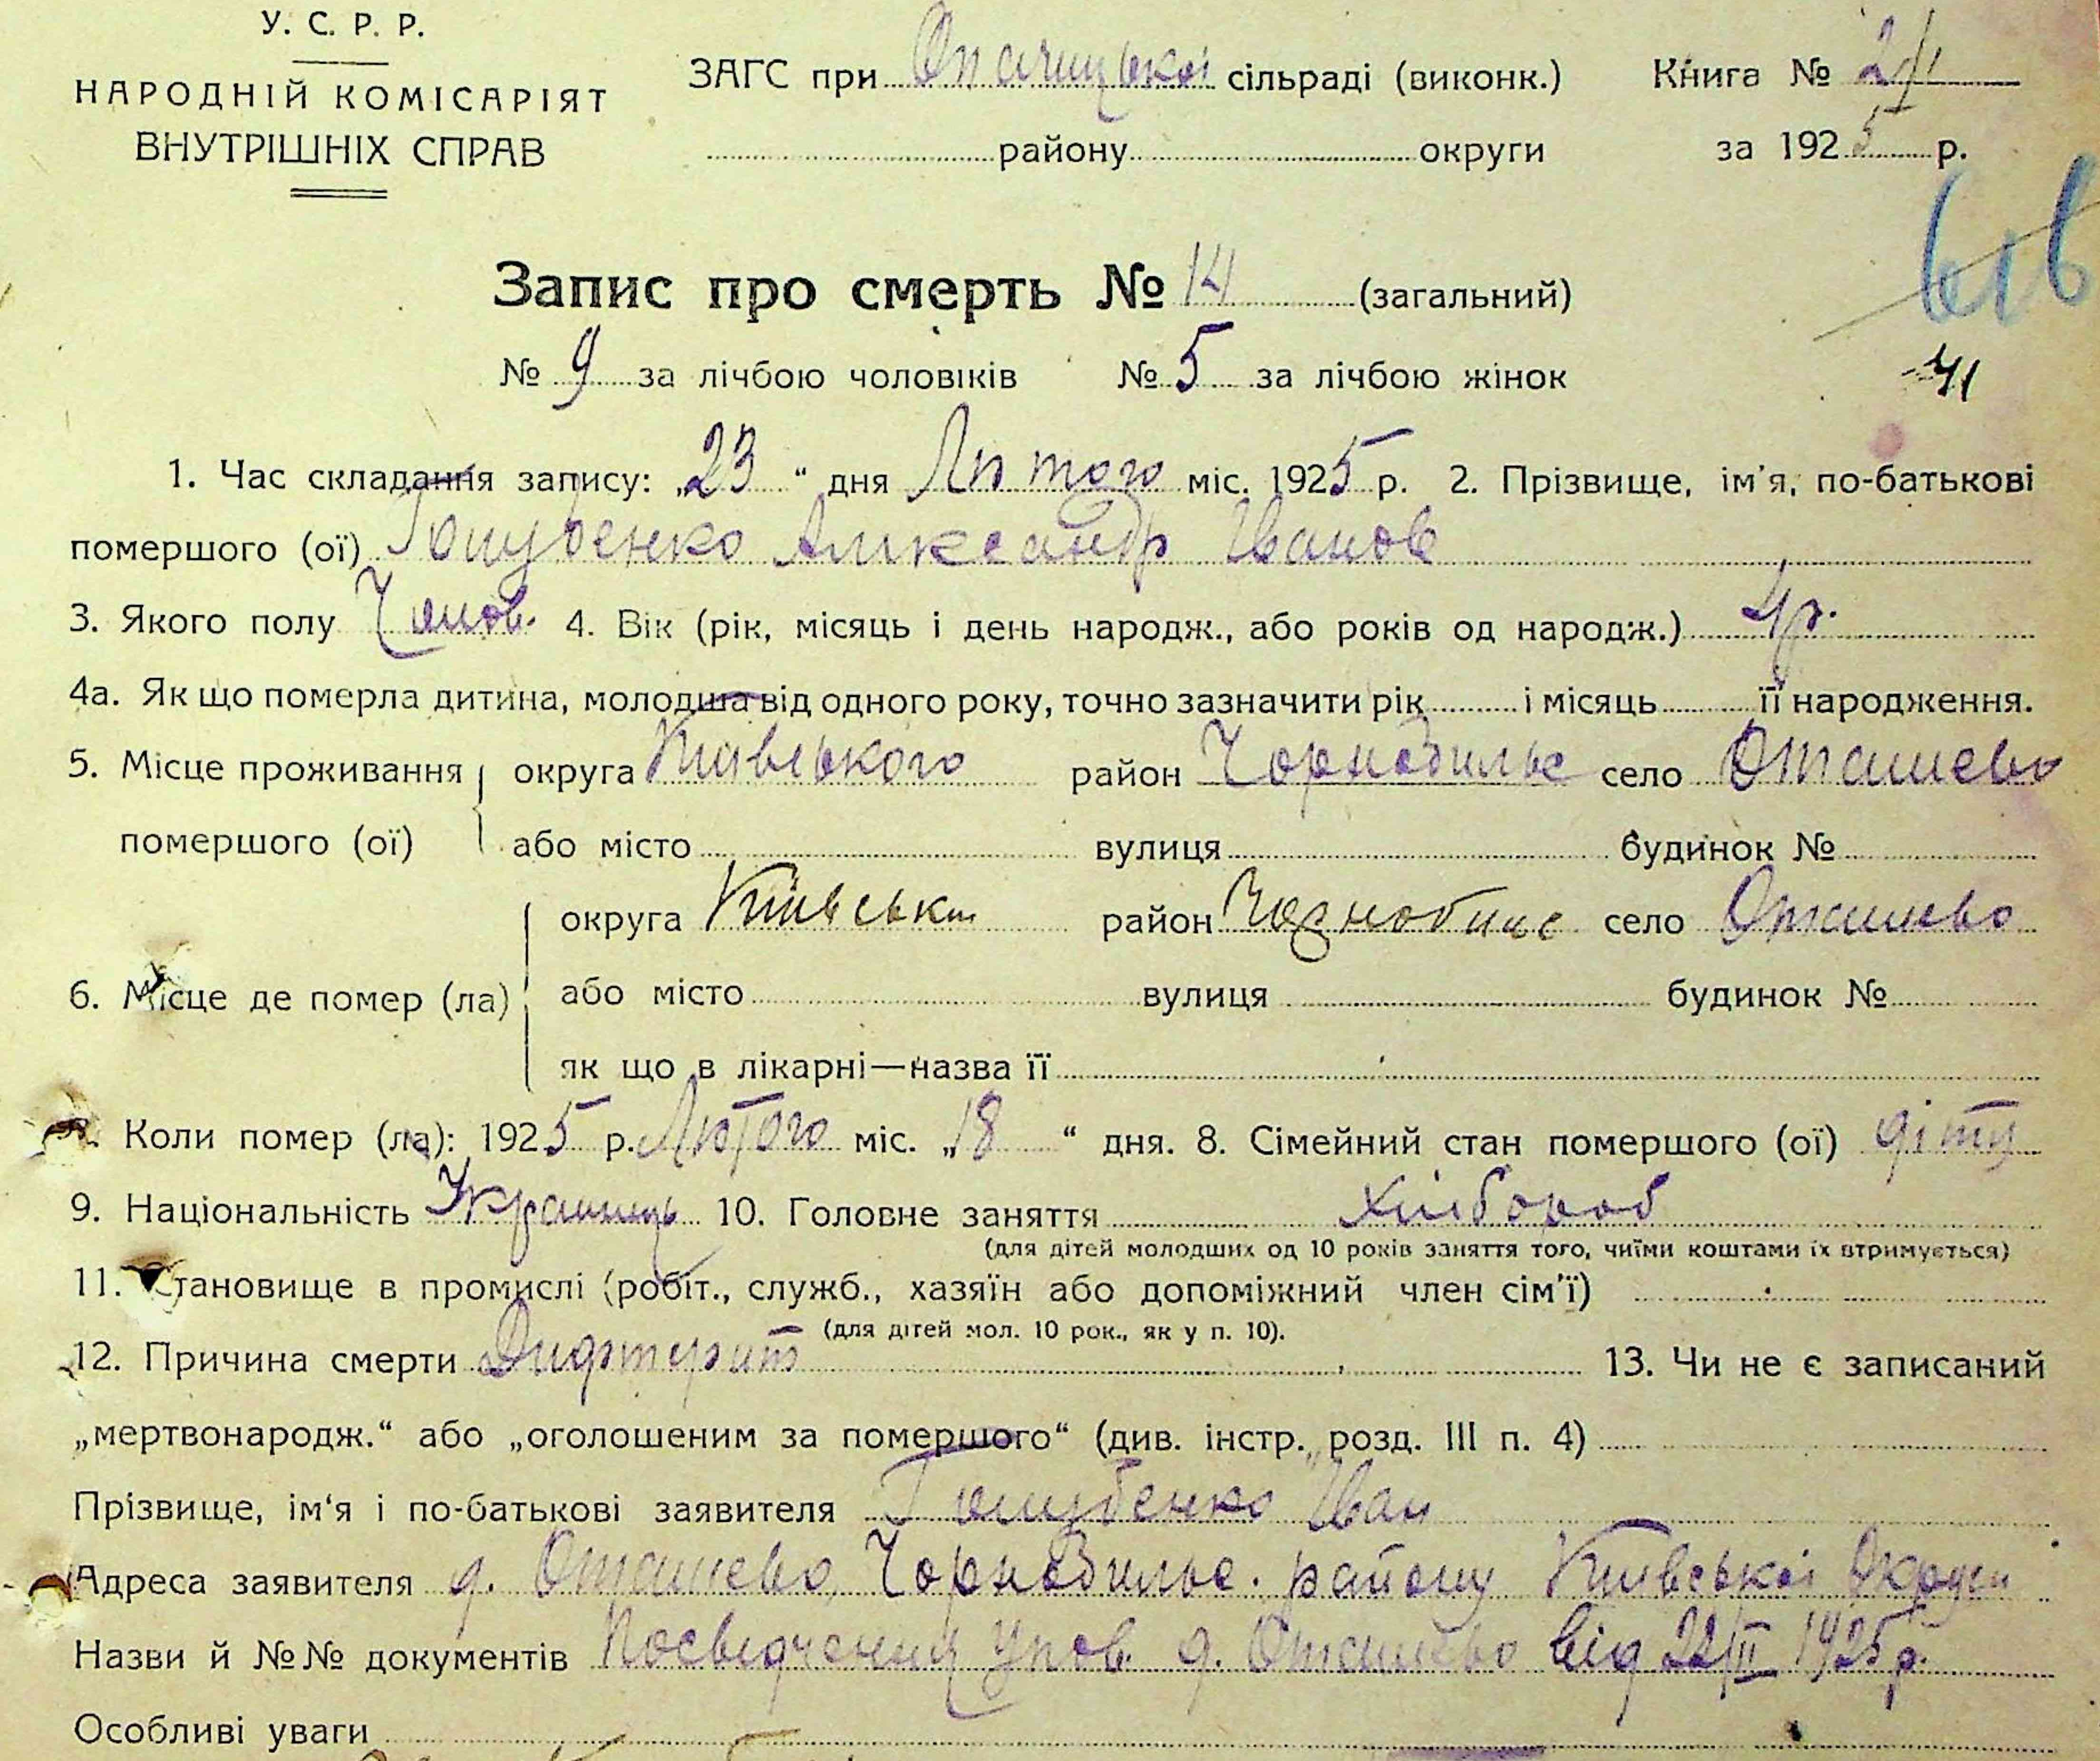 У. С. Р. Р.
НАРОДНІЙ КОМІСАРІЯТ
ВНУТРІШНІХ СПРАВ
ЗАГС при Опачицької сільраді (виконк.)
району округи
Книга № 2/1
за 1925 р.
616
Запис про смерть № 14 (загальний)
№ 9 за лічбою чоловіків № 5 за лічбою жінок
41
1. Час складання запису: „23“ дня Лютого міс. 1925 р. 2. Прізвище, ім'я, по-батькові
помершого (ої) Голубенко Александр Іванов
3. Якого полу Чолов. 4. Вік (рік, місяць і день народж., або років од народж.) 4р.
4а. Як що померла дитина, молодша від одного року, точно зазначити рік і місяць її народження.
5. Місце проживання помершого (ої) округа Київського район Чорнобильс село Оташево
або місто вулиця будинок №
6. Місце де помер (ла) округа Київськ район Чорнобильс село Оташево
або місто вулиця будинок №
як що в лікарні—назва її
7. Коли помер (ла): 1925 р. Лютого міс. „18“ дня. 8. Сімейний стан помершого (ої)
9. Національність Українець 10. Головне заняття Хлібороб
(для дітей молодших од 10 років заняття того, чиїми коштами їх втримується)
11. Становище в промислі (робіт., служб., хазяїн або допоміжний член сім'ї)
(для дітей мол. 10 рок., як у п. 10).
12. Причина смерти Дифтерит 13. Чи не є записаний
„мертвонародж.“ або „оголошеним за помершого“ (див. інстр. розд. III п. 4)
Прізвище, ім'я і по-батькові заявителя Голубенко Іван
Адреса заявителя д. Оташево Чорнобильс. району Київської Округи
Назви й №№ документів Посвідчення Упов. д. Оташево від 22/II 1925 р.
Особливі уваги